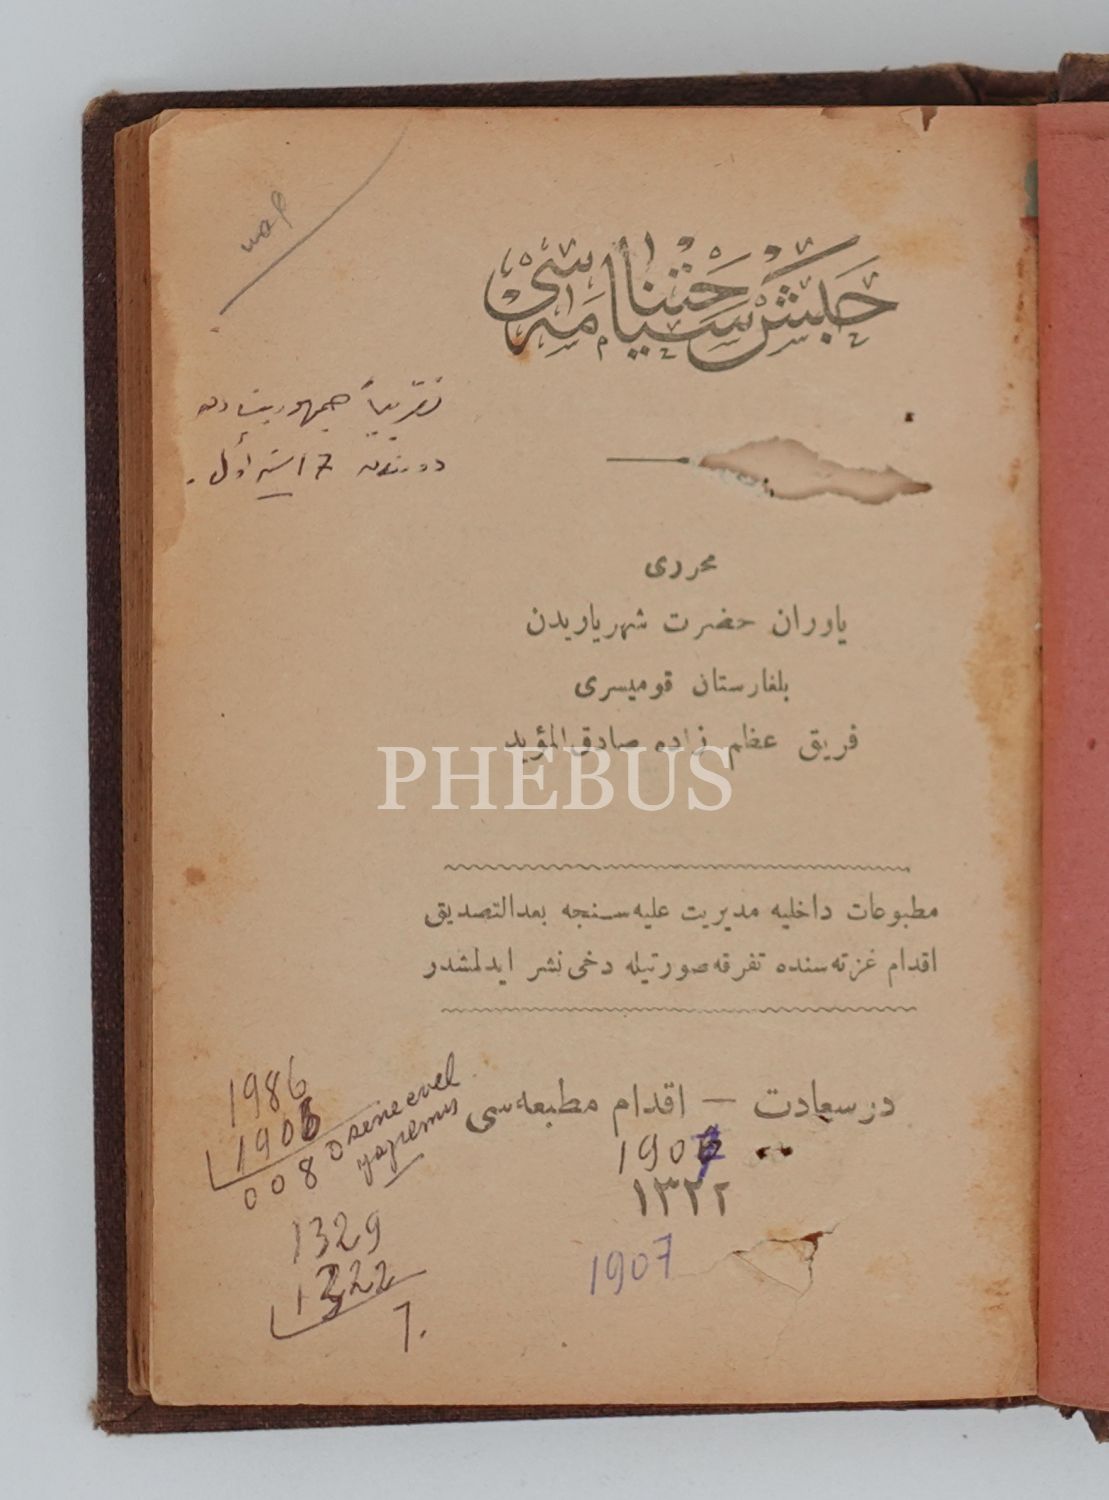 حبش سیاحتنامه سی
تقریباً
محرری
یاوران حضرت شهریاریدن
بلغارستان قومیسری
فریق عظم زاده صادق المؤید
PHEBUS
مطبوعات داخلیه مدیریت علیه سنجه بعدالتصدیق
اقدام غزته سنده تفرقه صورتیله دخی نشر ایدلمشدر
در سعادت — اقدام مطبعه سی
190
۱۳۲۲
1907
1986
1906
0080 sene evel
yazılmış
1329
1322
7.